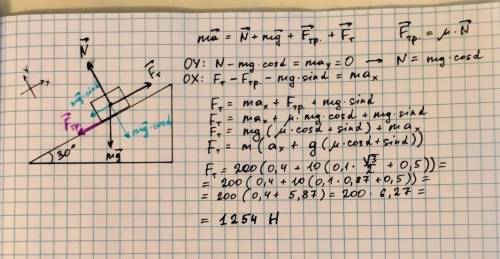 N
Fт
y
x
mg·sinα
Fтр.
mg·cosα
30°
mg
ma = N + mg + Fтр. + Fт
Fтр. = μ·N
OY: N - mg·cosα = may = 0 → N = mg·cosα
OX: Fт - Fтр. - mg·sinα = max
Fт = max + Fтр. + mg·sinα
Fт = max + μ·mg·cosα + mg·sinα
Fт = mg(μ·cosα + sinα) + max
Fт = m(ax + g(μ·cosα + sinα))
Fт = 200(0,4 + 10(0,1·√3/2 + 0,5)) =
= 200(0,4 + 10(0,1·0,87 + 0,5)) =
= 200(0,4 + 5,87) = 200·6,27 =
= 1254 Н